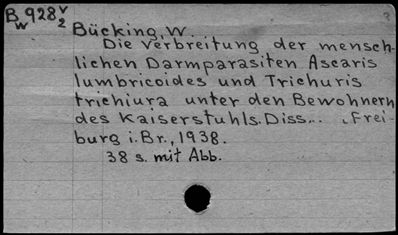 B 928 v
w 2
Bücking, W.
Die Verbreitung der mensch-
lichen Darmparasiten Ascaris
lumbricoides und Trichuris
trichiura unter den Bewohnern
des Kaiserstuhls. Diss... , Frei-
burg i. Br., 1938.
38 s. mit Abb.